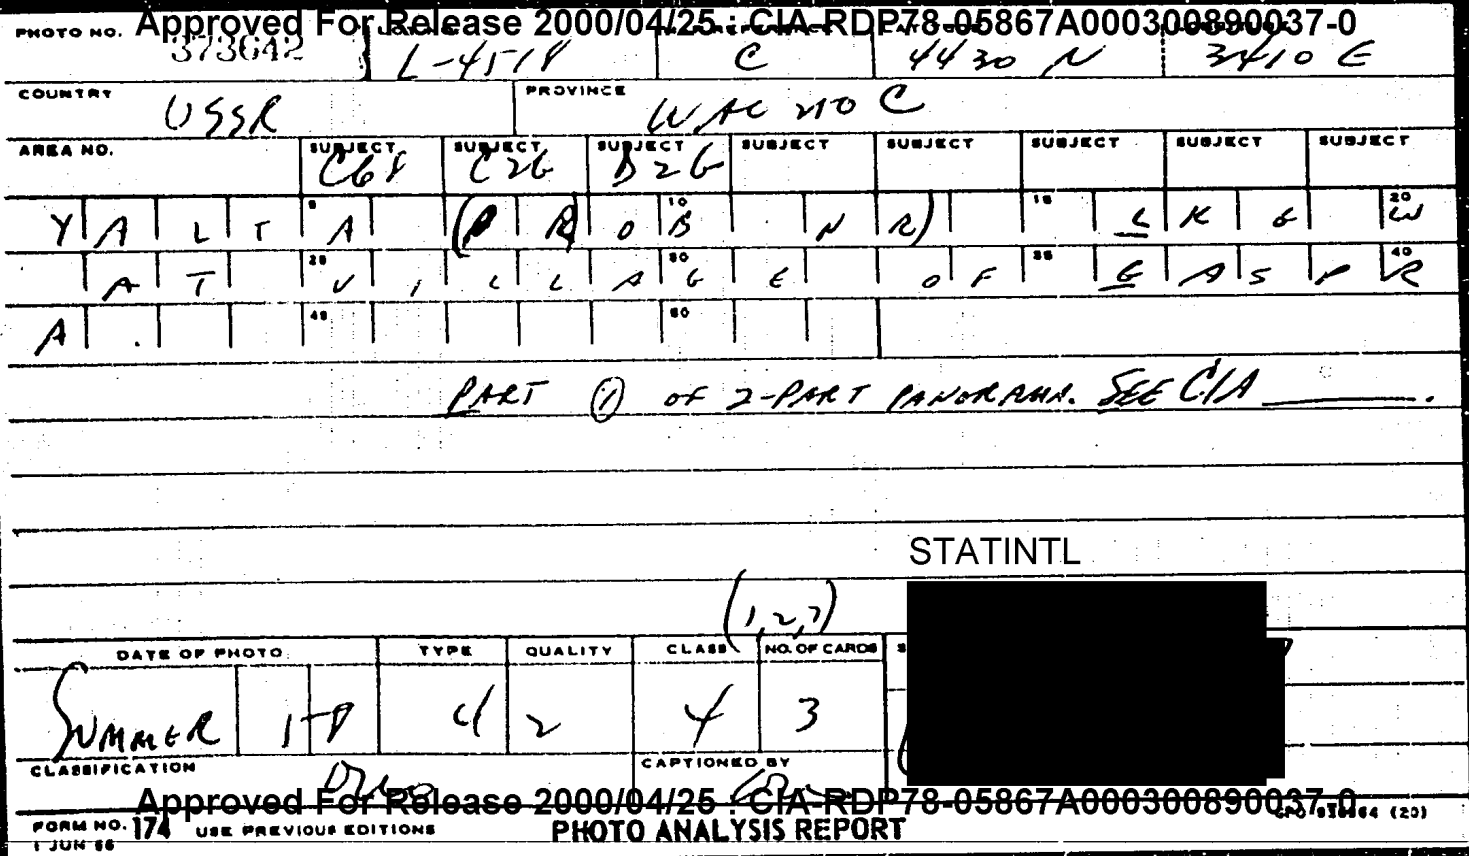 Approved For Release 2000/04/25 : CIA-RDP78-05867A000300890037-0
PHOTO NO. 373642 L-4518 C 4430 N 3410 E
COUNTRY USSR PROVINCE WAC 210 C
AREA NO. SUBJECT C68 SUBJECT C26 SUBJECT D26 SUBJECT SUBJECT SUBJECT SUBJECT SUBJECT
YALTA (PROB. NR) LKG W
AT VILLAGE OF GASPR
A.
PART (1) OF 2-PART PANORAMA. SEE CIA ______.
STATINTL
(1,2,3)
DATE OF PHOTO TYPE QUALITY CLASS NO. OF CARDS
SUMMER 4 2 4 3
CLASSIFICATION CAPTIONED BY
Approved For Release 2000/04/25 : CIA-RDP78-05867A000300890037-0
FORM NO. 174 USE PREVIOUS EDITIONS PHOTO ANALYSIS REPORT (20)
1 JUN 66